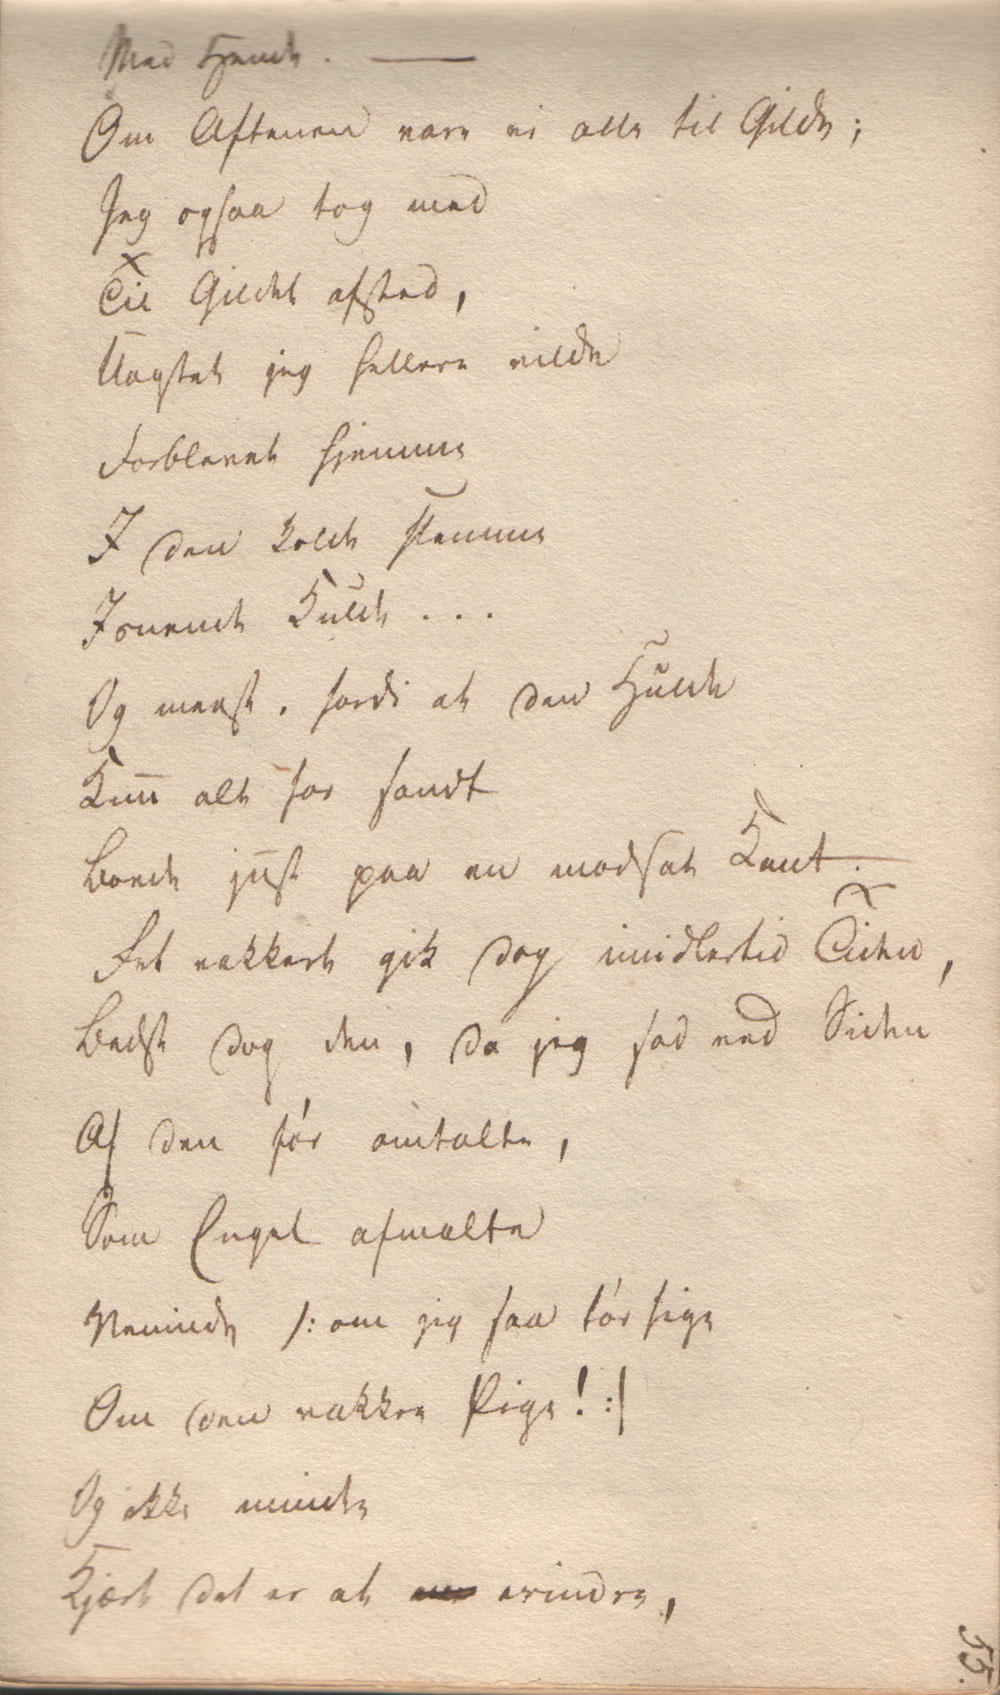 Med Hende. —
Om Aftenen vare vi alle til Gilde;
Jeg ogsaa tog med
Til Gildet afsted,
Uagtet jeg hellere vilde
Forblevet hjemme
I den kolde slemme
Isnende Kulde...
Og meest, fordi at den Hulde
Kun alt for sandt
Boede just paa en modsat Kant.
Ret vakkert gik dog imidlertid Tiden,
Bedst dog den, da jeg sad ved Siden
Af den før omtalte,
Som Engel afmalte
Veninde /: om jeg saa tør sige
Om den vakkre Pige! :/
Og ikke mindre
Kjært det er at erindre,
55.